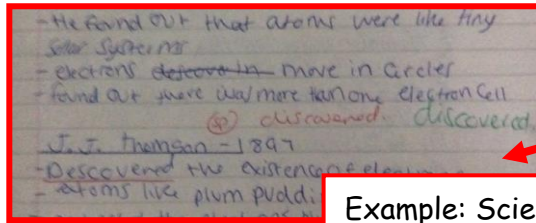 - He found out that atoms were like tiny
solar systems
- electrons descove in move in circles
- found out there was more than one electron cell
sp discovered. discovered.
J.J. Thomson - 1897
- Descovered the existence of
- atoms like plum puddi
Example: Scie